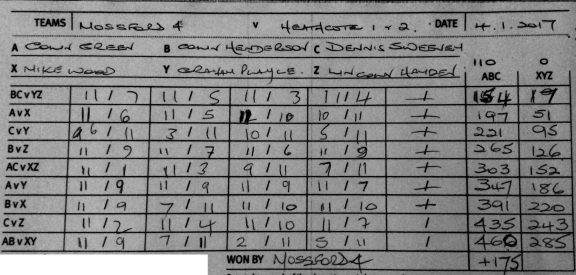 TEAMS MOSSFORD 4 V HEATHCOTE 1 & 2. DATE 4.1.2017
A COLIN GREEN B COLIN HENDERSON C DENNIS SWEENEY 110 0
X MIKE WOOD Y GRAHAM PLAYLE. Z LINCOLN HAYDEN ABC XYZ
BCvYZ 11 / 7 11 / 5 11 / 3 11/4 / 154 19
AvX 11 / 6 11 / 5 12 / 10 10 / 11 / 197 51
CvY 6 / 11 3 / 11 10 / 11 5 / 11 / 221 95
BvZ 11 / 9 11 / 7 11 / 6 11 / 9 / 265 126
ACvXZ 11 / 1 11 / 3 9 / 11 7 / 11 / 303 152
AvY 11 / 9 11 / 9 11 / 9 11 / 7 / 347 186
BvX 11 / 9 7 / 11 11 / 10 11 / 10 / 391 220
CvZ 11 / 2 11 / 4 11 / 10 11 / 7 / 435 243
ABvXY 11 / 9 7 / 11 2 / 11 5 / 11 / 460 285
WON BY MOSSFORD 4 +175